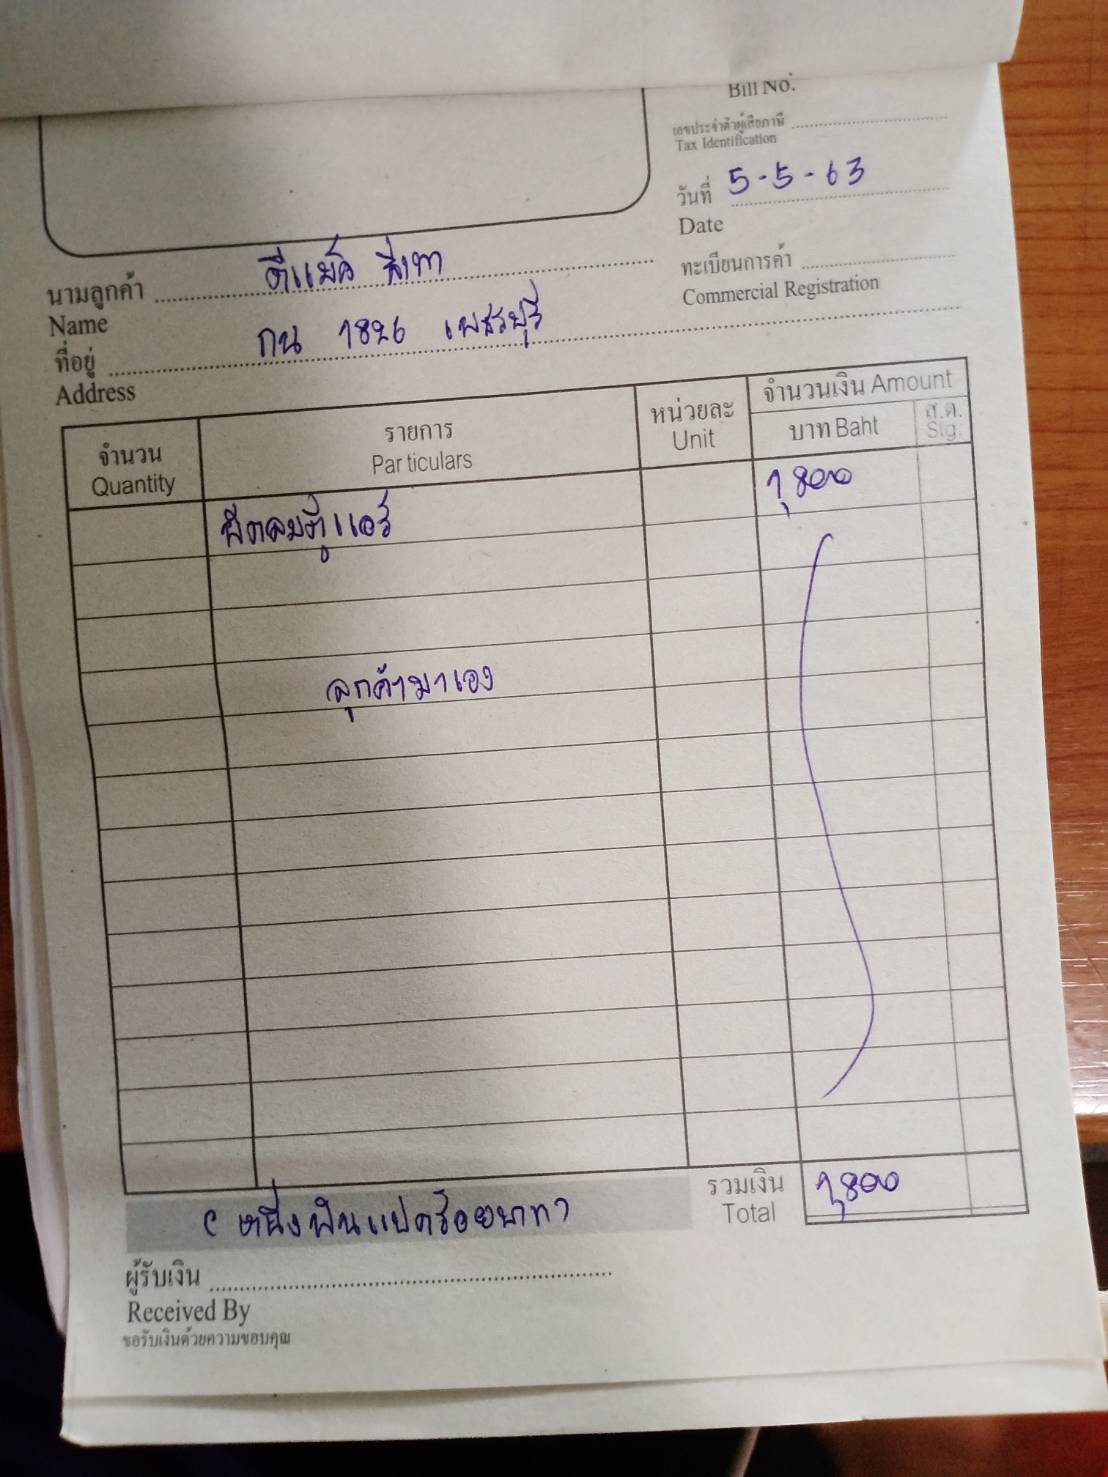 Bill No.
เลขประจำตัวผู้เสียภาษี
Tax Identification
วันที่ 5-5-63
Date
นามลูกค้า ดีแม็ค สีเทา
Name
ทะเบียนการค้า
Commercial Registration
ที่อยู่ กน 1826 เพชรบุรี
Address
จำนวน
Quantity
รายการ
Particulars
หน่วยละ
Unit
จำนวนเงิน Amount
บาท Baht
ส.ต.
Stg.
พัดลมตู้แอร์ 1,800
ลูกค้ามาเอง
รวมเงิน
Total
1,800
(หนึ่งพันแปดร้อยบาท)
ผู้รับเงิน
Received By
ขอรับเงินด้วยความขอบคุณ